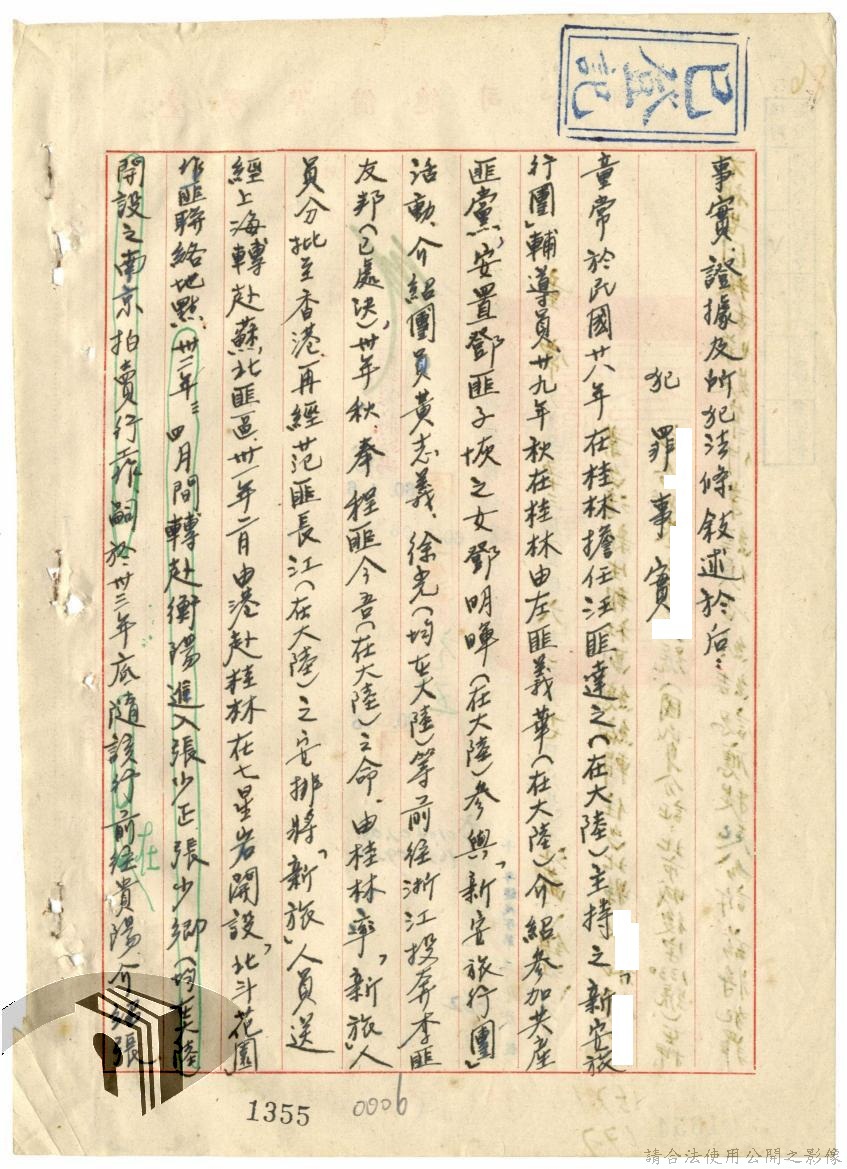 已登記
事實、證據及所犯法條敘述於后：
犯罪事實
童常於民國廿八年在桂林擔任汪匪達之（在大陸）主持之「新安旅
行團」輔導員，廿九年秋在桂林由左匪義華（在大陸）介紹參加共產
匪黨，安置鄧匪子恢之女鄧明暉（在大陸）參與「新安旅行團」
活動，介紹團員黃志義、徐光（均在大陸）等前往浙江投奔李匪
友邦（已處決），卅年秋，奉程匪今吾（在大陸）之命，由桂林率「新旅」人
員分批至香港，再經范匪長江（在大陸）之安排，將「新旅」人員送
經上海轉赴蘇北匪區，卅一年二月由港赴桂林在七星岩開設「北斗花園」
作匪聯絡地點，卅二年三四月間轉赴衡陽進入張少正、張少卿（均在大陸）
開設之南京拍賣行工作，嗣於卅三年底隨該行前往貴陽介紹張
在
1355
0006
請合法使用公開之影像